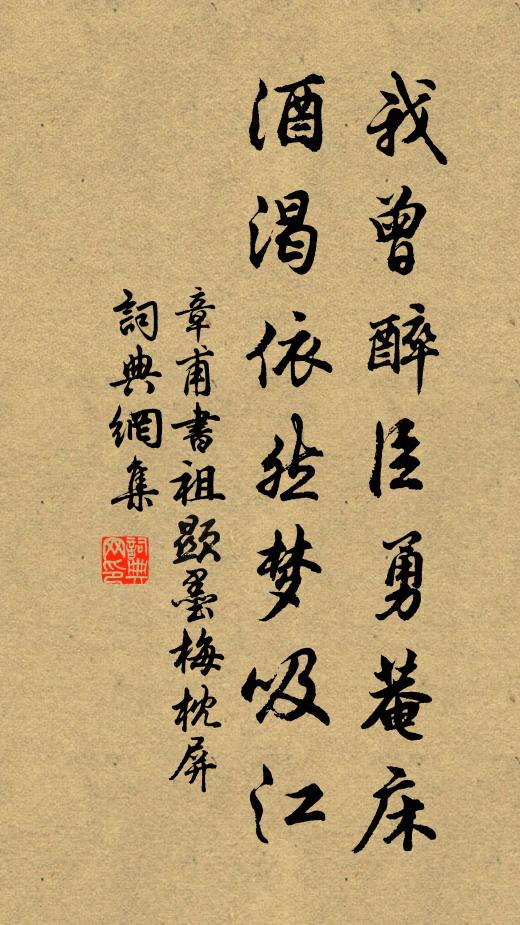 我曾醉臣勇菴床
酒渴依然梦吸江
章甫書祖顯墨梅枕屏
詞典網集
詞典网印